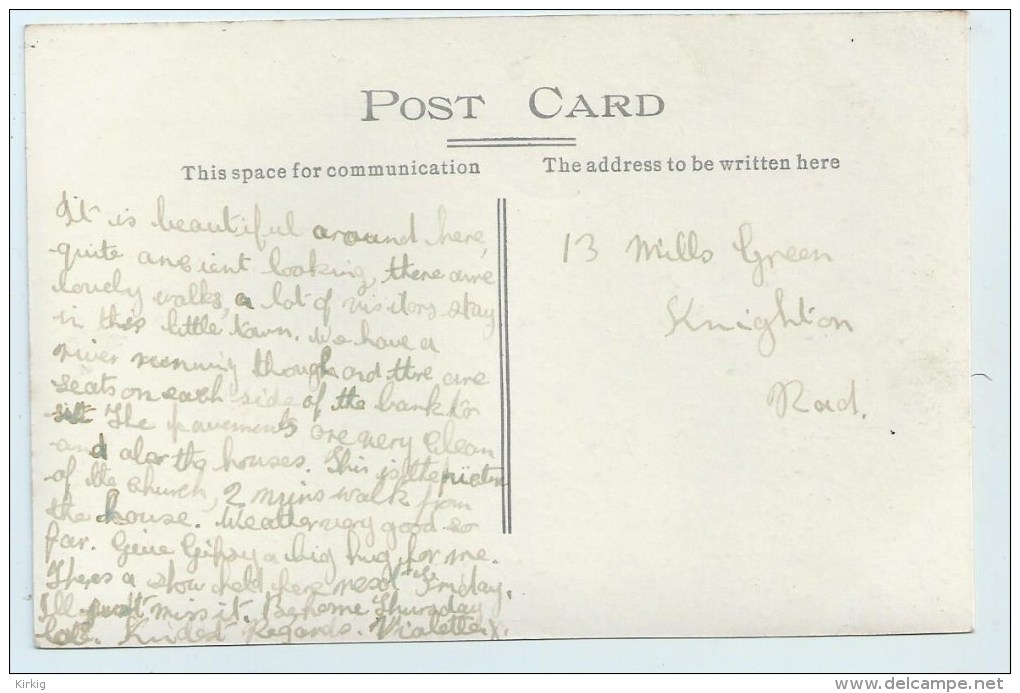 POST CARD
This space for communication
The address to be written here
It is beautiful around here,
quite ancient looking, there are
lovely walks, a lot of visitors stay
in this little town. We have a
river running though and there are
seats on each side of the bank to
sit The pavements are very clean
and also the houses. This is the
of the church, 2 mins walk from
the house. Weather very good so
far. Give Gipsy a big hug for me.
Theres a show held here Friday,
I'll just miss it. Be home Thursday
late. Kindest Regards. Violette x.
13 Mills Green
Knighton
Rad.
Kirkig
delcampe.net